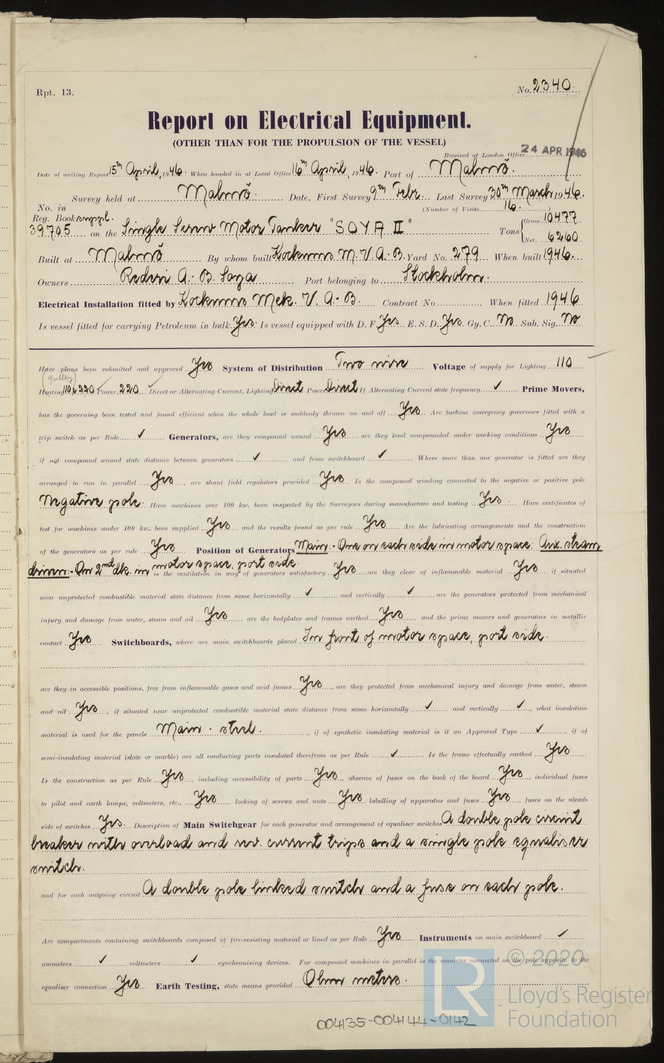 Rpt. 13.
No. 2340
Report on Electrical Equipment.
(OTHER THAN FOR THE PROPULSION OF THE VESSEL)
Received at London Office 24 APR 1946
Date of writing Report 15th April, 1946. When handed in at Local Office 16th April, 1946. Port of Malmö.
Survey held at Malmö. Date, First Survey 9th Febr. Last Survey 30th March 1946.
No. in Reg. Book. suppl. (Number of Visits 16.)
39705 on the Single Screw Motor Tanker "SOYA II" Tons { Gross 10477 Net 6260
Built at Malmö By whom built Kockums M.V.A-B. Yard No. 279 When built 1946.
Owners Rederi A.-B. Soya Port belonging to Stockholm.
Electrical Installation fitted by Kockums Mek. V. A-B. Contract No When fitted 1946
Is vessel fitted for carrying Petroleum in bulk Yes Is vessel equipped with D.F. Yes E.S.D. Yes Gy.C. No Sub. Sig. No
Have plans been submitted and approved Yes System of Distribution Two wire Voltage of supply for Lighting 110
(galley)
Heating 110 & 220 Power 220 Direct or Alternating Current, Lighting Direct Power Direct If Alternating Current state frequency ✓ Prime Movers,
has the governing been tested and found efficient when the whole load is suddenly thrown on and off Yes Are turbine emergency governors fitted with a
trip switch as per Rule ✓ Generators, are they compound wound Yes are they level compounded under working conditions Yes
if not compound wound state distance between generators ✓ and from switchboard ✓ Where more than one generator is fitted are they
arranged to run in parallel Yes are shunt field regulators provided Yes Is the compound winding connected to the negative or positive pole
Negative pole. Have machines over 100 kw. been inspected by the Surveyors during manufacture and testing Yes Have certificates of
test for machines under 100 kw. been supplied Yes and the results found as per rule Yes Are the lubricating arrangements and the construction
of the generators as per rule Yes Position of Generators Main:- One on each side in motor space. Aux. steam
driven:- On 2nd dk. in motor space, port side. is the ventilation in way of generators satisfactory Yes are they clear of inflammable material Yes if situated
near unprotected combustible material state distance from same horizontally ✓ and vertically ✓ are the generators protected from mechanical
injury and damage from water, steam and oil Yes are the bedplates and frames earthed Yes and the prime movers and generators in metallic
contact Yes Switchboards, where are main switchboards placed In front of motor space, port side.
are they in accessible positions, free from inflammable gases and acid fumes Yes are they protected from mechanical injury and damage from water, steam
and oil Yes if situated near unprotected combustible material state distance from same horizontally ✓ and vertically ✓ what insulation
material is used for the panels Main - steel. if of synthetic insulating material is it an Approved Type ✓ if of
semi-insulating material (slate or marble) are all conducting parts insulated therefrom as per Rule ✓ Is the frame effectually earthed Yes
Is the construction as per Rule Yes including accessibility of parts Yes absence of fuses on the back of the board Yes individual fuses
to pilot and earth lamps, voltmeters, etc. Yes locking of screws and nuts Yes labelling of apparatus and fuses Yes fuses on the "dead"
side of switches Yes. Description of Main Switchgear for each generator and arrangement of equaliser switches A double pole circuit
breaker with overload and rev. current trips and a single pole equaliser
switch.
and for each outgoing circuit A double pole linked switch and a fuse on each pole.
Are compartments containing switchboards composed of fire-resisting material or lined as per Rule Yes Instruments on main switchboard ✓
ammeters ✓ voltmeters ✓ synchronising devices. For compound machines in parallel is the ammeter connected on the pole opposite to the
equaliser connection Yes Earth Testing, state means provided Ohm meters.
© 2020
Lloyd's Register
Foundation
LR
004135-004144-0142